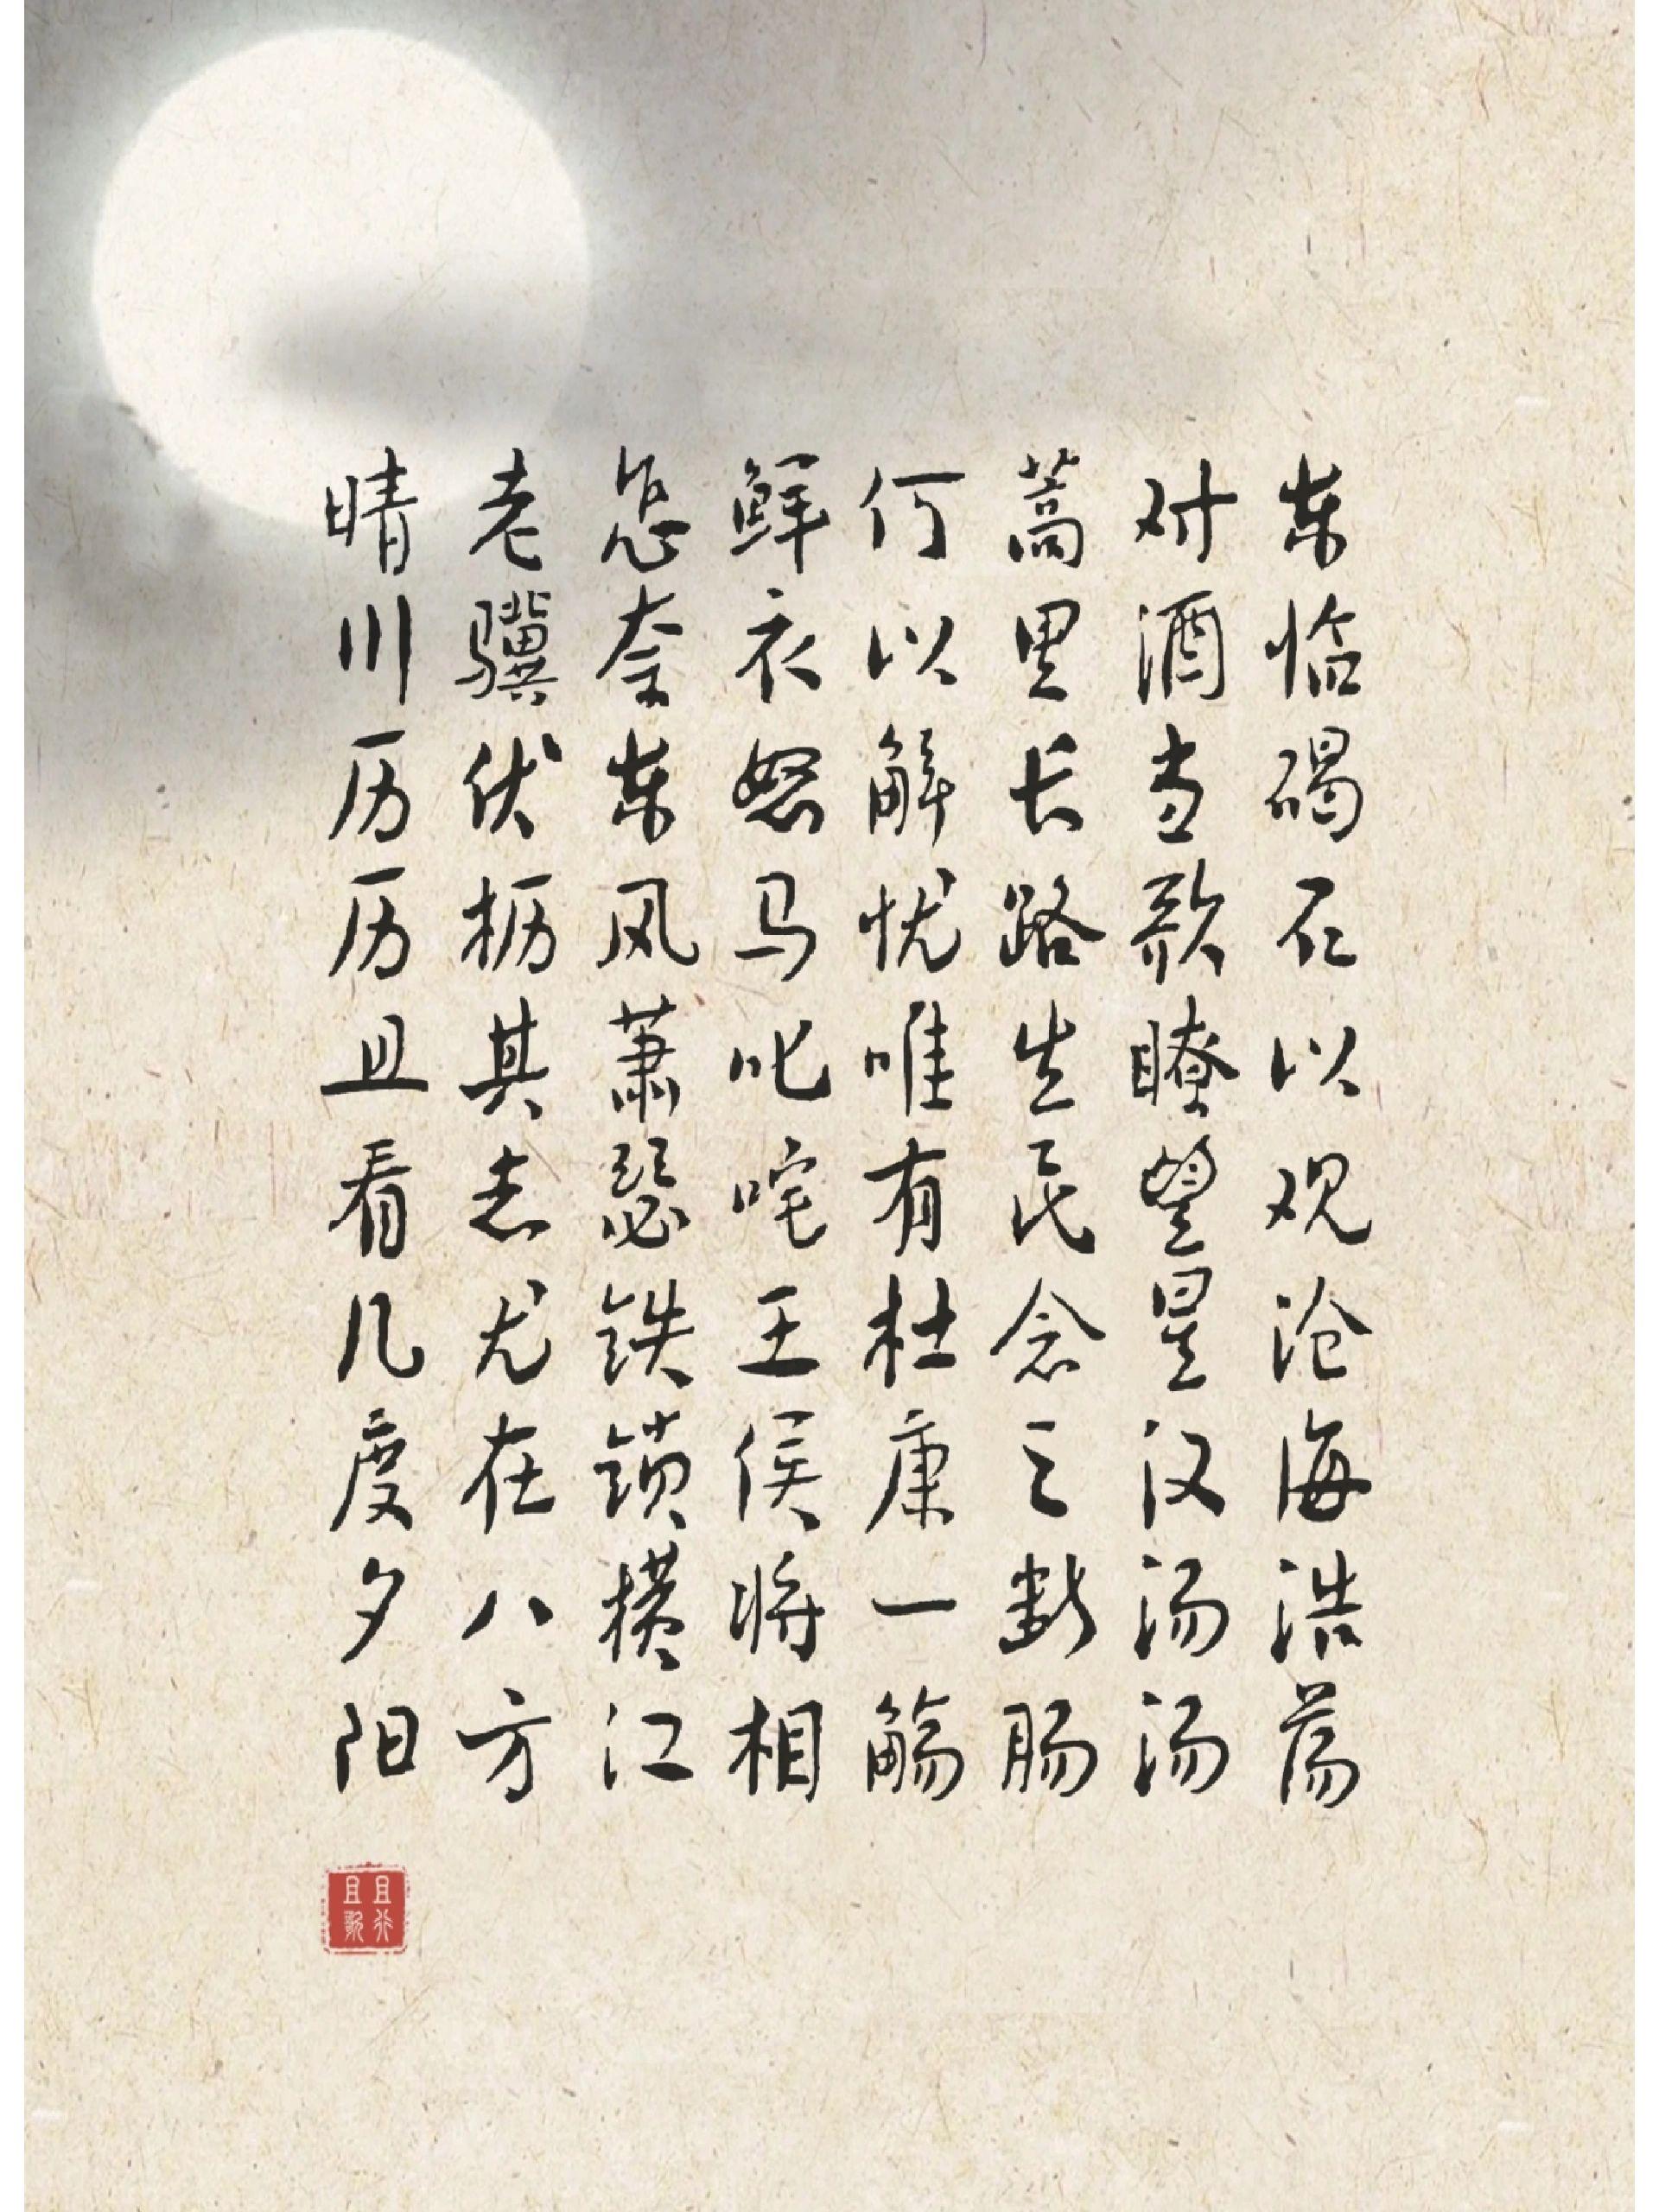 东临碣石以观沧海浩荡
对酒当歌瞭望星汉汤汤
蒿里长路生民念之断肠
何以解忧唯有杜康一觞
鲜衣怒马叱咤王侯将相
怎奈东风萧瑟铁锁横江
老骥伏枥其志尤在八方
晴川历历且看几度夕阳
且行
且歌